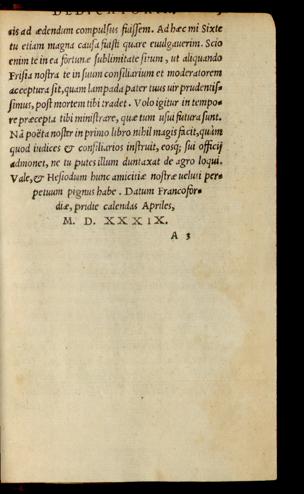 DEDICATORIA. 5
cis ad ædendum compulsus fiassem. Ad hæc mi Sixte
tu etiam magna causa fiasti quare euulgauerim. Scio
enim te in ea fortunæ sublimitate situm, ut aliquando
Frisia nostra te in suum consiliarium et moderatorem
acceptura sit, quam lampada pater tuus uir prudentis-
simus, post mortem tibi tradet. Volo igitur in tempo-
re præcepta tibi ministrare, quæ tum usui futura sunt.
Nã poëta noster in primo libro nihil magis facit, quàm
quod iudices & consiliarios instruit, eosq; sui officij
admonet, ne tu putes illum duntaxat de agro loqui.
Vale, & Hesiodum hunc amicitiæ nostræ ueluti per-
petuum pignus habe. Datum Francofor-
diæ, pridie calendas Apriles,
M. D. XXXIX.
A 3